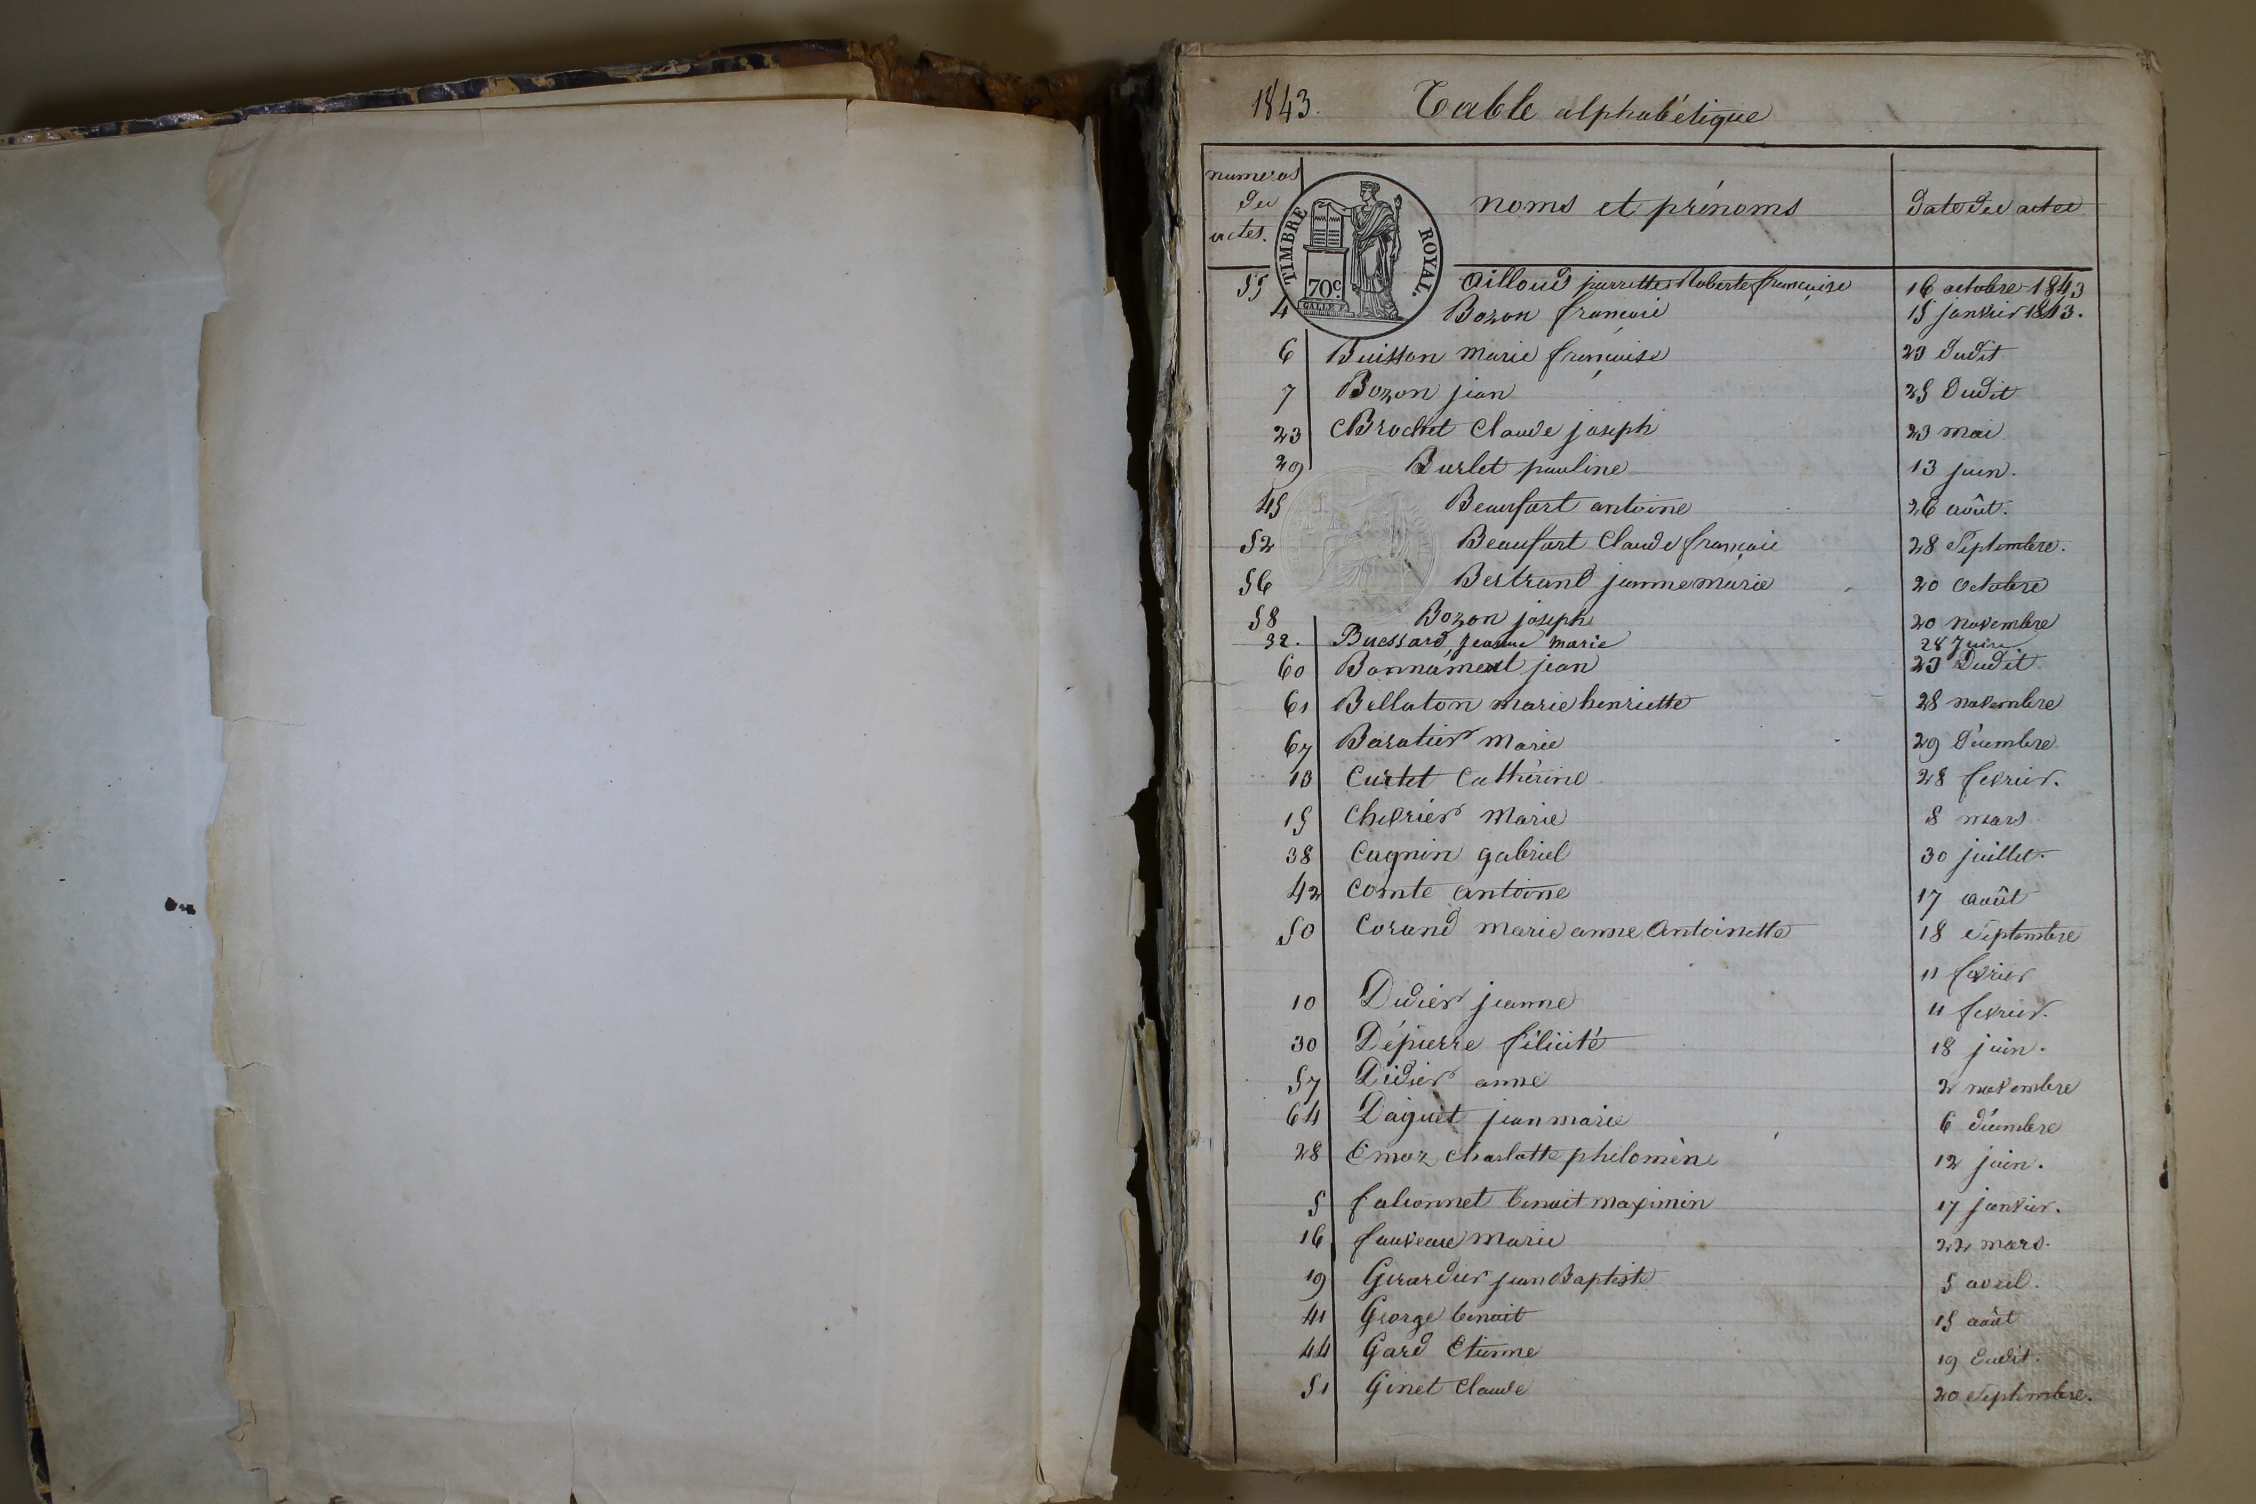 1843. Table alphabétique
numeros des actes. noms et prénoms Date des actes
TIMBRE ROYAL.
70c.
55 Ailloud pierrette Roberte françoise 16 octobre 1843
4 Bozon françois 15 janvier 1843.
6 Buisson marie françoise 23 dudit
7 Bozon jean 25 Dudit
23 Brochet Claude joseph 23 mai
29 Burlet pauline 13 juin.
45 Beaufort antoine 26 août.
52 Beaufort Claude françois 28 Septembre.
56 Bertrand jeanne marie 20 Octobre
58 Bozon joseph 20 novembre
32. Buessard, Jeanne Marie 28 Juin
60 Bonnament jean 23 Dudit
61 Bellaton marie henriette 28 novembre
67 Baratier Marie 29 Décembre
13 Curtet Cathérine 28 fevrier.
15 Chevrier Marie 8 mars
38 Cugnin gabriel 30 juillet.
42 Comte antoine 17 août
50 Corand marie anne Antoinette 18 Septembre
11 fevrier
10 Didier jeanne 11 fevrier.
30 Dépierre félicité 18 juin.
57 Didier anne 2 novembre
64 Daiguet jean marie 6 décembre
28 Emoz charlotte philomène 12 juin.
5 falconnet benoit maximin 17 janvier.
16 fauveau Marie 22 mars.
19 Girardier jean Baptiste 5 avril.
41 George benoit 15 août
44 Gard Etienne 19 dudit.
51 Ginet Claude 20 Septembre.